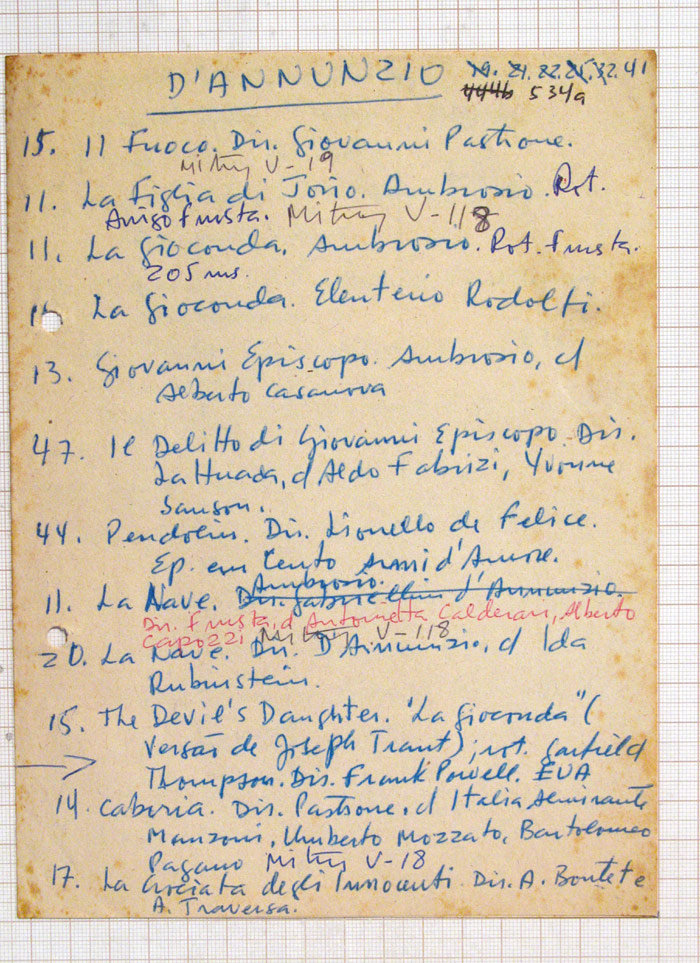 D'ANNUNZIO 19. 21. 22. 25. 32. 41
444b 534a
15. Il Fuoco. Dir. Giovanni Pastrone.
Mitry V-19
11. La Figlia di Jorio. Ambrosio. Rot.
Arrigo Frusta. Mitry V-118
11. La Gioconda. Ambrosio. Rot. Frusta.
205 ms.
La Gioconda. Eleuterio Rodolfi.
13. Giovanni Episcopo. Ambrosio, d
Alberto Casanova
47. Il Delitto di Giovanni Episcopo. Dir.
Lattuada, d Aldo Fabrizi, Yvonne
Sanson.
44. Pendolin. Dir. Lionello de Felice.
Ep. em Cento Anni d'Amore.
Ambrosio.
11. La Nave. Dir. Gabriellino d'Annunzio.
Dir. Frusta, d Antonietta Calderari, Alberto
Capozzi Mitry V-118
20. La Nave. Dir. D'Annunzio, d Ida
Rubinstein.
15. The Devil's Daughter. "La Gioconda" (
versão de Joseph Trant); rot. Garfield
Thompson. Dir. Frank Powell. EUA
14. Cabiria. Dir. Pastrone, d Italia Almirante
Manzoni, Umberto Mozzato, Bartolomeo
Pagano Mitry V-18
17. La Crociata degli Innocenti. Dir. A. Boutet e
A. Traversa.